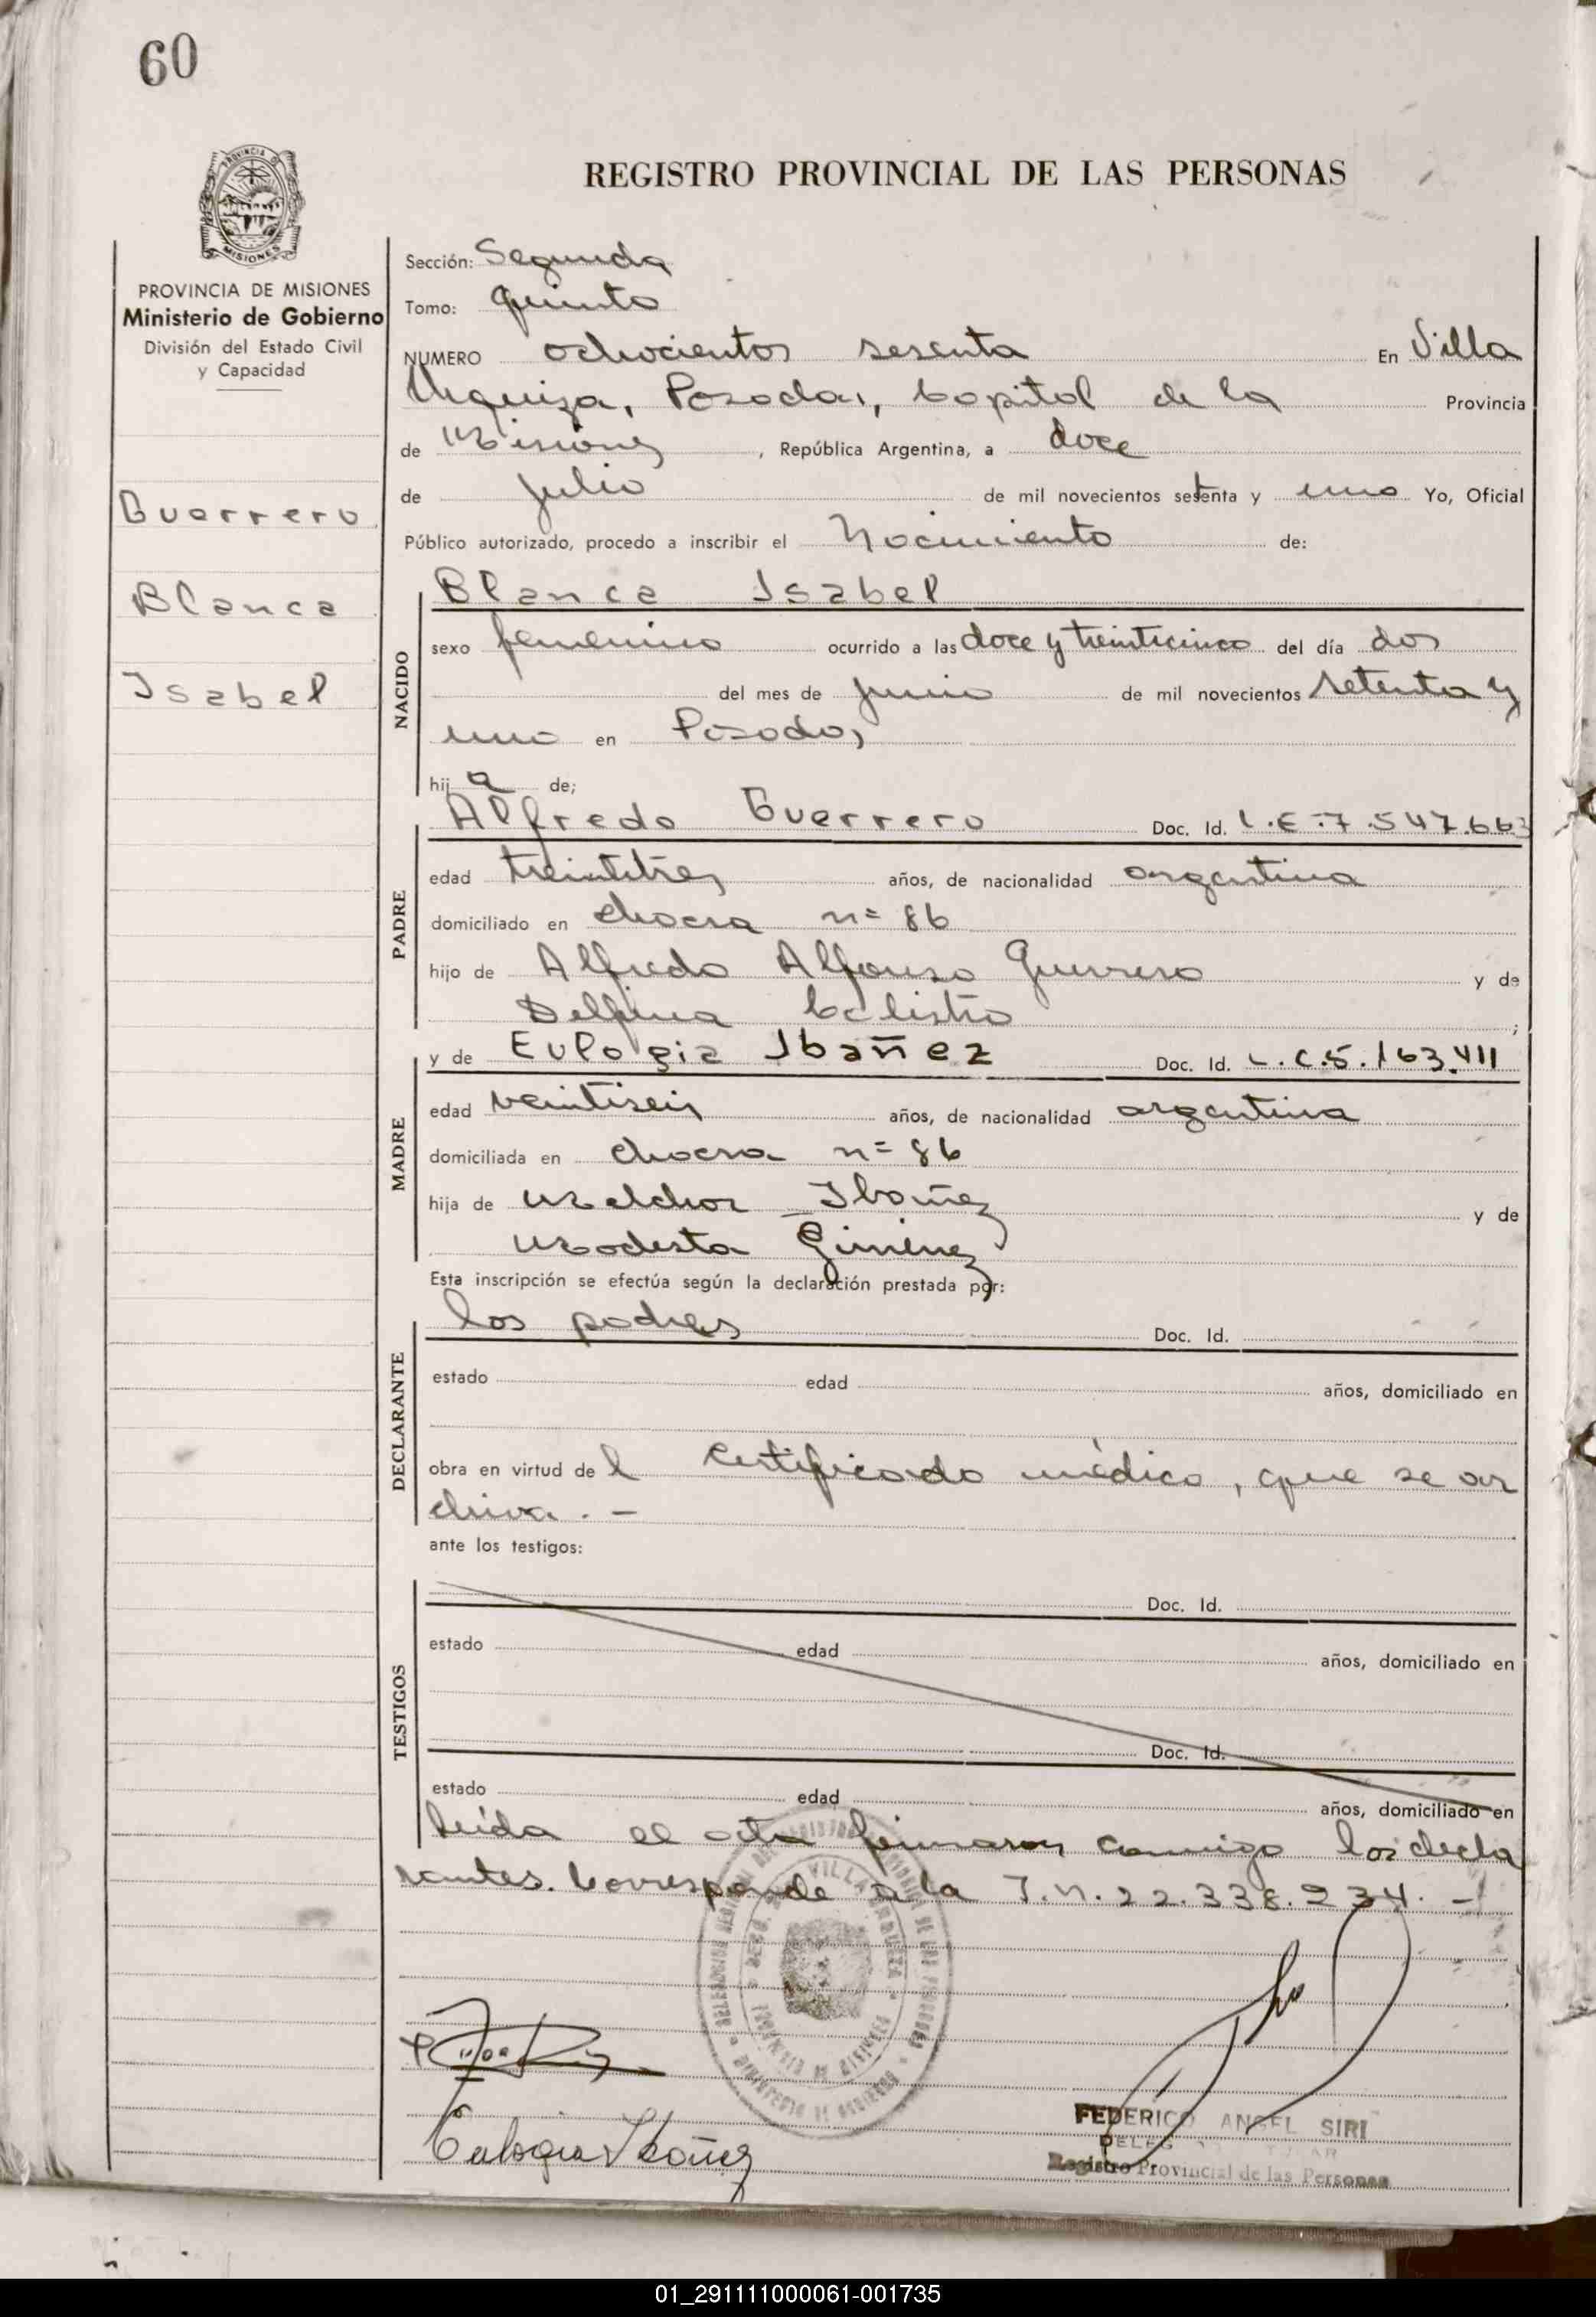 60
REGISTRO PROVINCIAL DE LAS PERSONAS
PROVINCIA DE
MISIONES
PROVINCIA DE MISIONES
Ministerio de Gobierno
División del Estado Civil
y Capacidad
Guerrero
Blanca
Isabel
Sección: Segunda
Tomo: quinto
NUMERO ochocientos sesenta En Villa
Urquiza, Posadas, Capital de la Provincia
de Misiones, República Argentina, a doce
de Julio de mil novecientos setenta y uno Yo, Oficial
Público autorizado, procedo a inscribir el Nacimiento de:
NACIDO
Blanca Isabel
sexo femenino ocurrido a las doce y treinticinco del día dos
del mes de junio de mil novecientos setenta y
uno en Posadas
hija de;
PADRE
Alfredo Guerrero Doc. Id. L.E.7.547.663
edad treintitres años, de nacionalidad argentina
domiciliado en chacra n= 86
hijo de Alfredo Alfonso Guerrero y de
Delfina Calistro;
MADRE
y de Eulogia Ibañez Doc. Id. L.C.5.163.411
edad veintiseis años, de nacionalidad argentina
domiciliada en chacra n= 86
hija de Melchor Ibañez y de
Modesta Giménez
Esta inscripción se efectúa según la declaración prestada por:
DECLARANTE
los padres Doc. Id.
estado edad años, domiciliado en
obra en virtud del certificado médico, que se ar
chiva. -
ante los testigos:
TESTIGOS
Doc. Id.
estado edad años, domiciliado en
Doc. Id.
estado edad años, domiciliado en
leída el acta firmaron conmigo los decla
rantes. Corresponde a la I.N.22.338.234. -
Eulogia Ibañez
FEDERICO ANGEL SIRI
Registro Provincial de las Personas
01_291111000061-001735